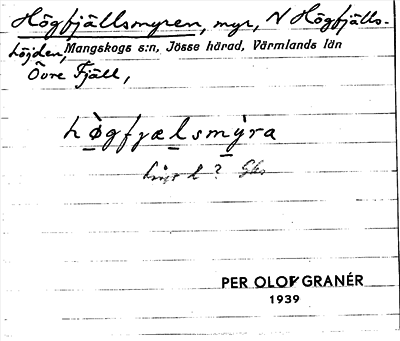 Högfjällsmyren, myr, N Högfjälls-
höjden, Mangskogs s:n, Jösse härad, Värmlands län
Övre Fjäll,
hø̀gfjælsmỳra
l ?
PER OLOF GRANÉR
1939